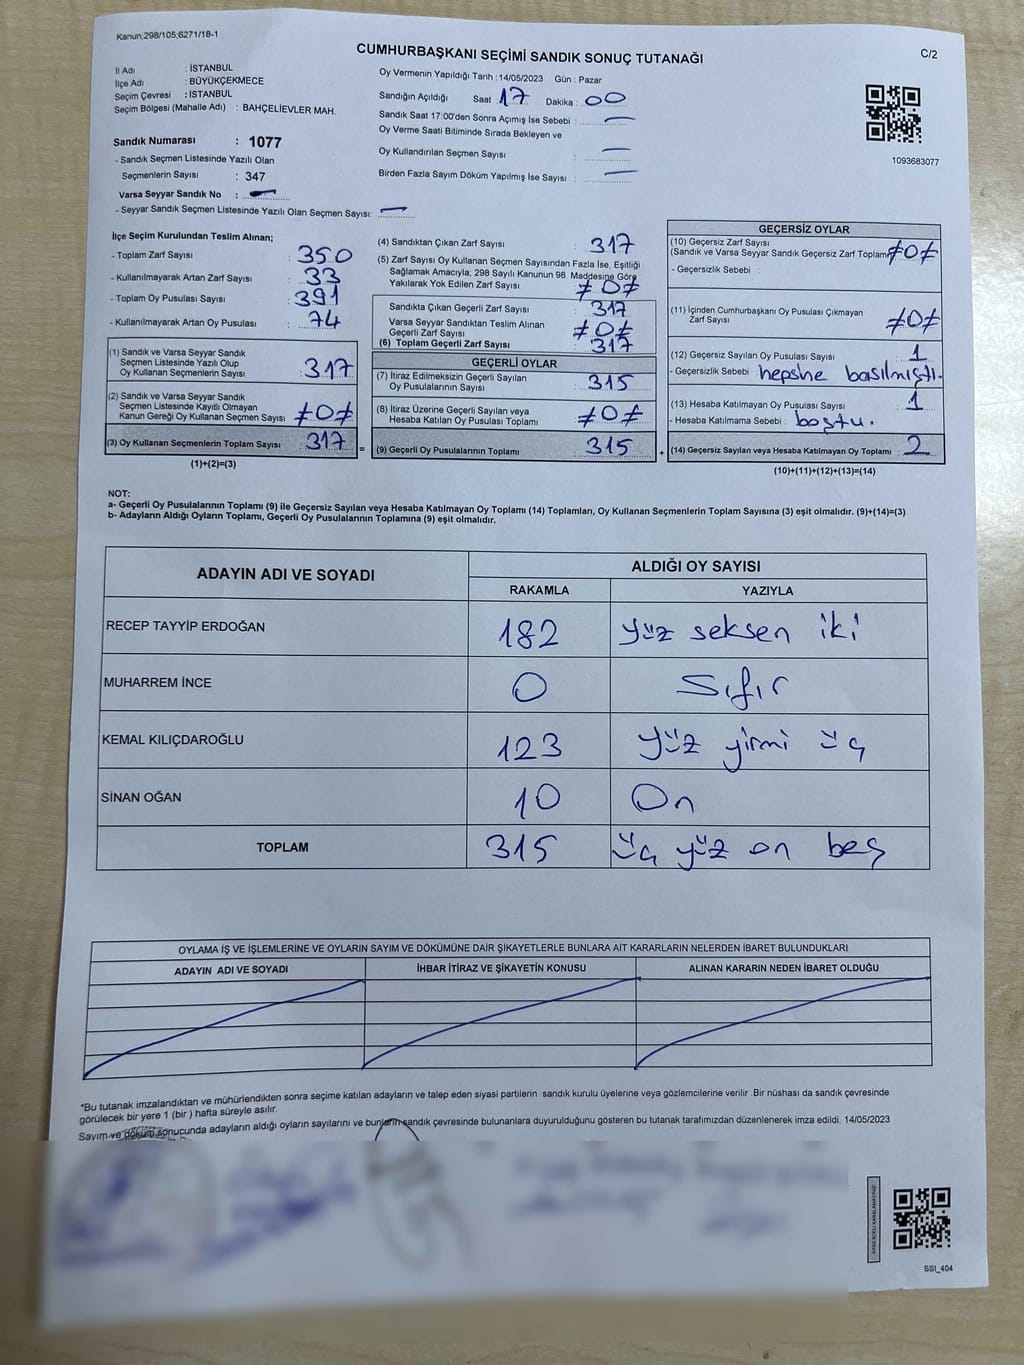 Kanun;298/105;6271/18-1
C/2
CUMHURBAŞKANI SEÇİMİ SANDIK SONUÇ TUTANAĞI
İl Adı : İSTANBUL
İlçe Adı : BÜYÜKÇEKMECE
Seçim Çevresi : İSTANBUL
Seçim Bölgesi (Mahalle Adı) : BAHÇELİEVLER MAH.
Sandık Numarası : 1077
- Sandık Seçmen Listesinde Yazılı Olan
Seçmenlerin Sayısı : 347
Varsa Seyyar Sandık No : —
- Seyyar Sandık Seçmen Listesinde Yazılı Olan Seçmen Sayısı: —
Oy Vermenin Yapıldığı Tarih : 14/05/2023 Gün : Pazar
Sandığın Açıldığı Saat 17 Dakika : 00
Sandık Saat 17:00'den Sonra Açımış İse Sebebi : —
Oy Verme Saati Bitiminde Sırada Bekleyen ve
Oy Kullandırılan Seçmen Sayısı : —
Birden Fazla Sayım Döküm Yapılmış İse Sayısı : —
1093683077
İlçe Seçim Kurulundan Teslim Alınan;
- Toplam Zarf Sayısı : 350
- Kullanılmayarak Artan Zarf Sayısı : 33
- Toplam Oy Pusulası Sayısı : 391
- Kullanılmayarak Artan Oy Pusulası : 74
(1) Sandık ve Varsa Seyyar Sandık
Seçmen Listesinde Yazılı Olup
Oy Kullanan Seçmenlerin Sayısı : 317
(2) Sandık ve Varsa Seyyar Sandık
Seçmen Listesinde Kayıtlı Olmayan
Kanun Gereği Oy Kullanan Seçmen Sayısı : ≠0≠
(3) Oy Kullanan Seçmenlerin Toplam Sayısı : 317
(1)+(2)=(3)
(4) Sandıktan Çıkan Zarf Sayısı : 317
(5) Zarf Sayısı Oy Kullanan Seçmen Sayısından Fazla İse, Eşitliği
Sağlamak Amacıyla; 298 Sayılı Kanunun 98. Maddesine Göre
Yakılarak Yok Edilen Zarf Sayısı : ≠0≠
Sandıkta Çıkan Geçerli Zarf Sayısı : 317
Varsa Seyyar Sandıktan Teslim Alınan
Geçerli Zarf Sayısı : ≠0≠
(6) Toplam Geçerli Zarf Sayısı : 317
GEÇERLİ OYLAR
(7) İtiraz Edilmeksizin Geçerli Sayılan
Oy Pusulalarının Sayısı : 315
(8) İtiraz Üzerine Geçerli Sayılan veya
Hesaba Katılan Oy Pusulası Toplamı : ≠0≠
= (9) Geçerli Oy Pusulalarının Toplamı : 315
GEÇERSİZ OYLAR
(10) Geçersiz Zarf Sayısı
(Sandık ve Varsa Seyyar Sandık Geçersiz Zarf Toplamı) ≠0≠
- Geçersizlik Sebebi :
(11) İçinden Cumhurbaşkanı Oy Pusulası Çıkmayan
Zarf Sayısı : ≠0≠
(12) Geçersiz Sayılan Oy Pusulası Sayısı : 1
- Geçersizlik Sebebi : hepsine basılmıştı.
(13) Hesaba Katılmayan Oy Pusulası Sayısı : 1
- Hesaba Katılmama Sebebi : boştu.
+ (14) Geçersiz Sayılan veya Hesaba Katılmayan Oy Toplamı : 2
(10)+(11)+(12)+(13)=(14)
NOT:
a- Geçerli Oy Pusulalarının Toplamı (9) ile Geçersiz Sayılan veya Hesaba Katılmayan Oy Toplamı (14) Toplamları, Oy Kullanan Seçmenlerin Toplam Sayısına (3) eşit olmalıdır. (9)+(14)=(3)
b- Adayların Aldığı Oyların Toplamı, Geçerli Oy Pusulalarının Toplamına (9) eşit olmalıdır.
ADAYIN ADI VE SOYADI ALDIĞI OY SAYISI
RAKAMLA YAZIYLA
RECEP TAYYİP ERDOĞAN 182 yüz seksen iki
MUHARREM İNCE 0 Sıfır
KEMAL KILIÇDAROĞLU 123 yüz yirmi üç
SİNAN OĞAN 10 On
TOPLAM 315 üç yüz on beş
OYLAMA İŞ VE İŞLEMLERİNE VE OYLARIN SAYIM VE DÖKÜMÜNE DAİR ŞİKAYETLERLE BUNLARA AİT KARARLARIN NELERDEN İBARET BULUNDUKLARI
ADAYIN ADI VE SOYADI İHBAR İTİRAZ VE ŞİKAYETİN KONUSU ALINAN KARARIN NEDEN İBARET OLDUĞU
*Bu tutanak imzalandıktan ve mühürlendikten sonra seçime katılan adayların ve talep eden siyasi partilerin sandık kurulu üyelerine veya gözlemcilerine verilir. Bir nüshası da sandık çevresinde
görülecek bir yere 1 (bir ) hafta süreyle asılır.
Sayım ve döküm sonucunda adayların aldığı oyların sayılarını ve bunların sandık çevresinde bulunanlara duyurulduğunu gösteren bu tutanak tarafımızdan düzenlenerek imza edildi. 14/05/2023
SSI_404